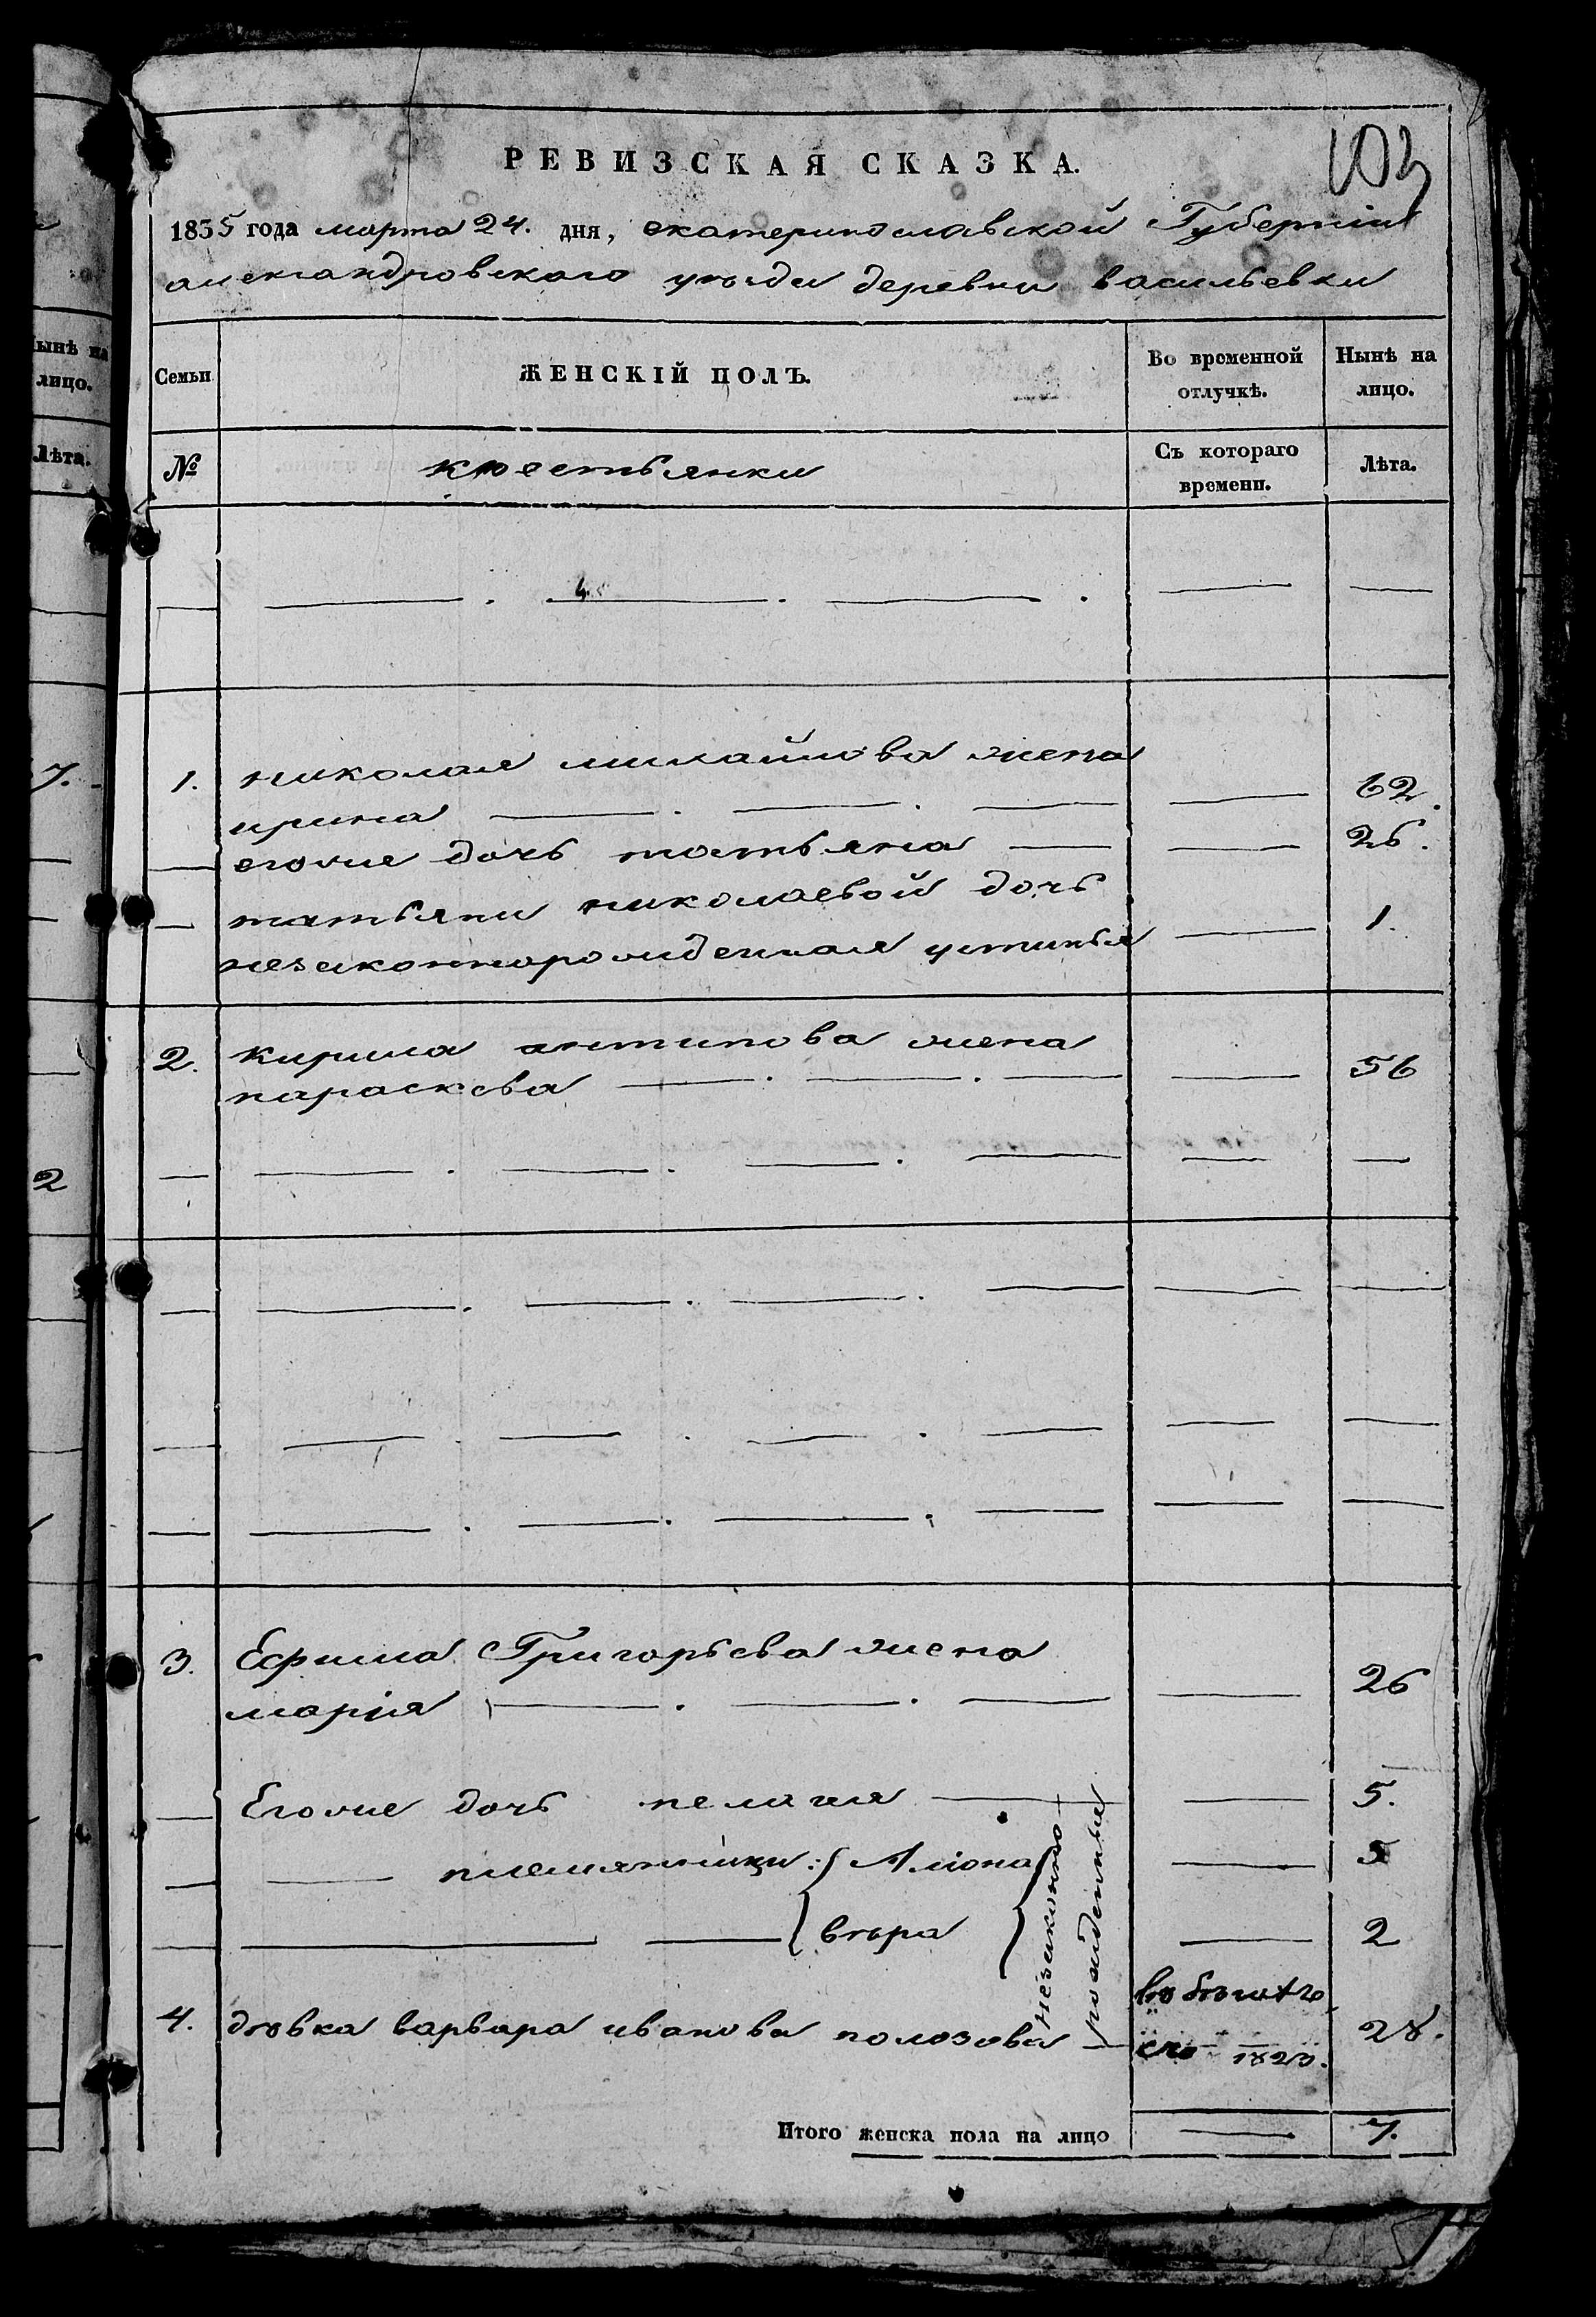 103
РЕВИЗСКАЯ СКАЗКА.
1835 года марта 24. дня, екатеринославской Губернiи
александровскаго уѣзда деревни васильевки
ынѣ на
лицо.
Лѣта.
7.
2
Семьи
ЖЕНСКІЙ ПОЛЪ.
Во временной отлучкѣ.
Нынѣ на лицо.
№
крестьянки
Съ котораго времени.
Лѣта.
1. николая михайлова жена
ирина 62.
егоже дочь татьяна 26.
татьяни николаевой дочь 1.
незаконнорожденная устинья
2. кирила антипова жена
параскева 56
3. Ефима Григорьева жена
марiя 26
Егоже дочь пелагия 5.
племянницы: Алiона 5
вѣра 2
незаконно
рожденныя
4. дѣвка варвара иванова полозова 28.
1823.
Итого женска пола на лицо 7.